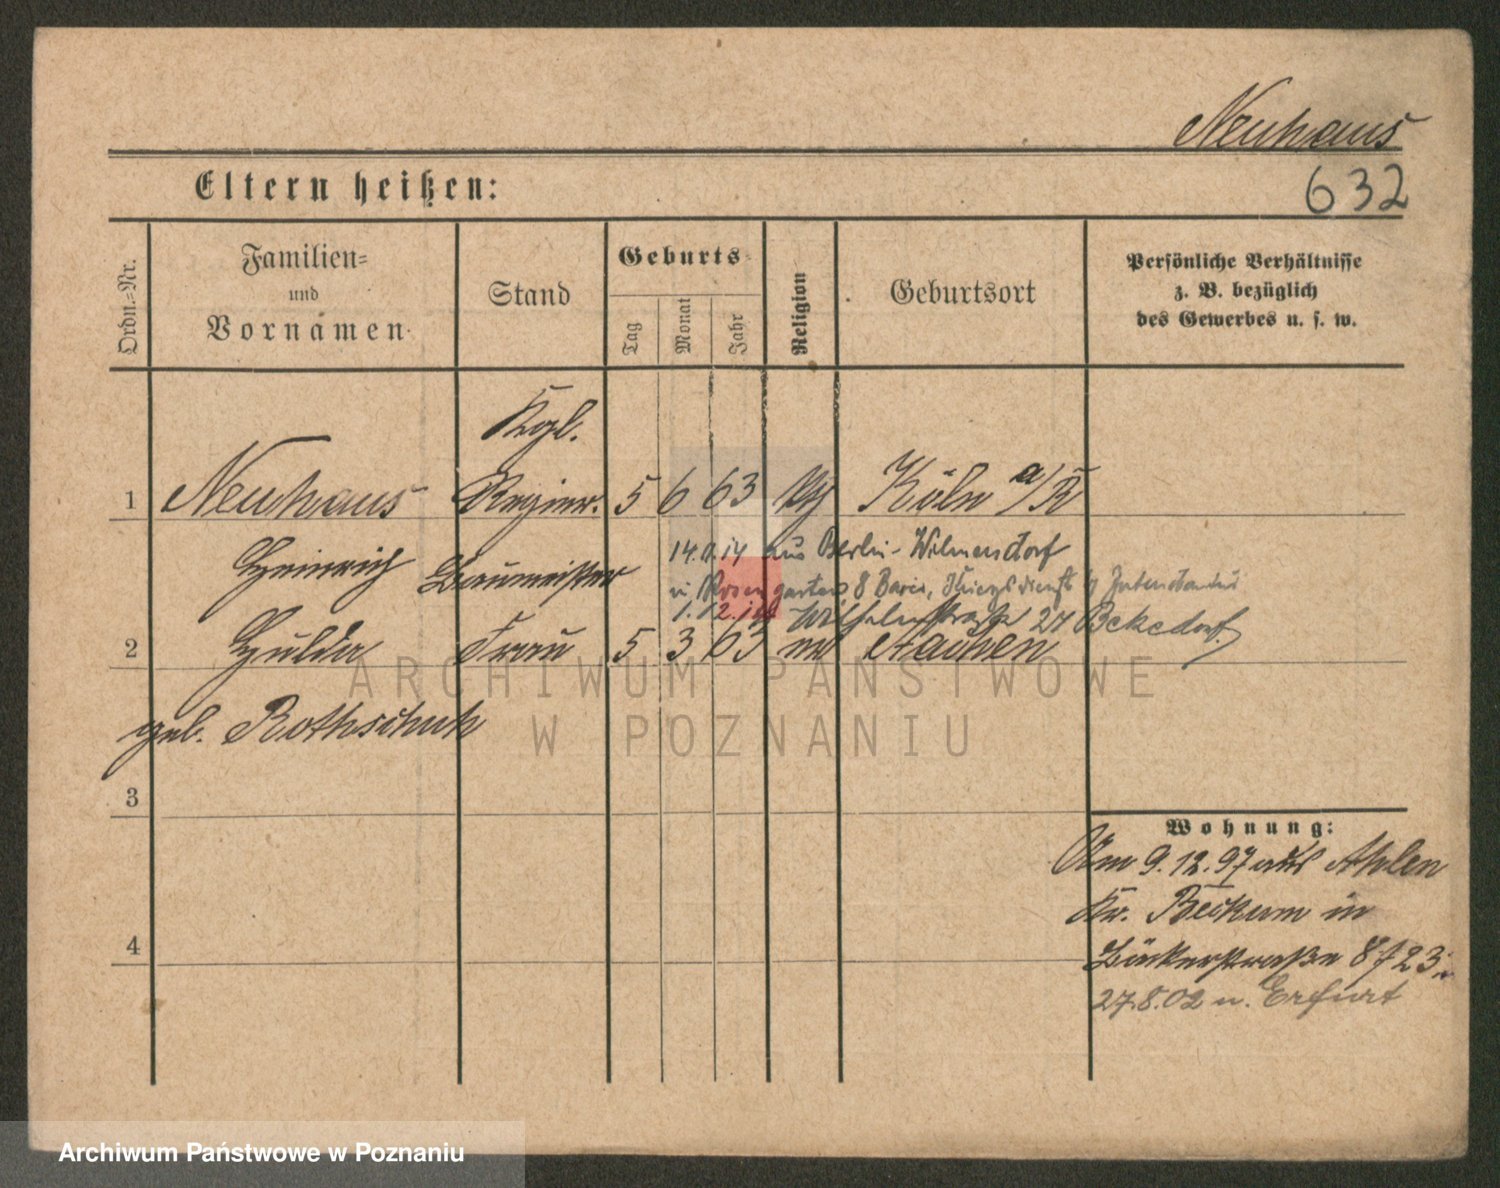 Neuhaus
632
Eltern heißen:
Ordn.=Nr.
Familien=
und
Vornamen
Stand
Geburts=
Tag
Monat
Jahr
Religion
Geburtsort
Persönliche Verhältnisse
z. B. bezüglich
des Gewerbes u. s. w.
Kgl.
1 Neuhaus Regier. 5 6 63 Köln a/R
Heinrich Baumeister
aus Berlin-Wilmersdorf
1.12.14 Wilhelmstraße 24
2 Hulda Frau 5 3 63 Aachen
geb. Rothschuh
3
4
Wohnung:
Am 9.12.97 aus Ahlen
Kr. Beckum in
Bäckerstraße 8 723.
27.8.02 n. Erfurt
ARCHIWUM PAŃSTWOWE
W POZNANIU
Archiwum Państwowe w Poznaniu